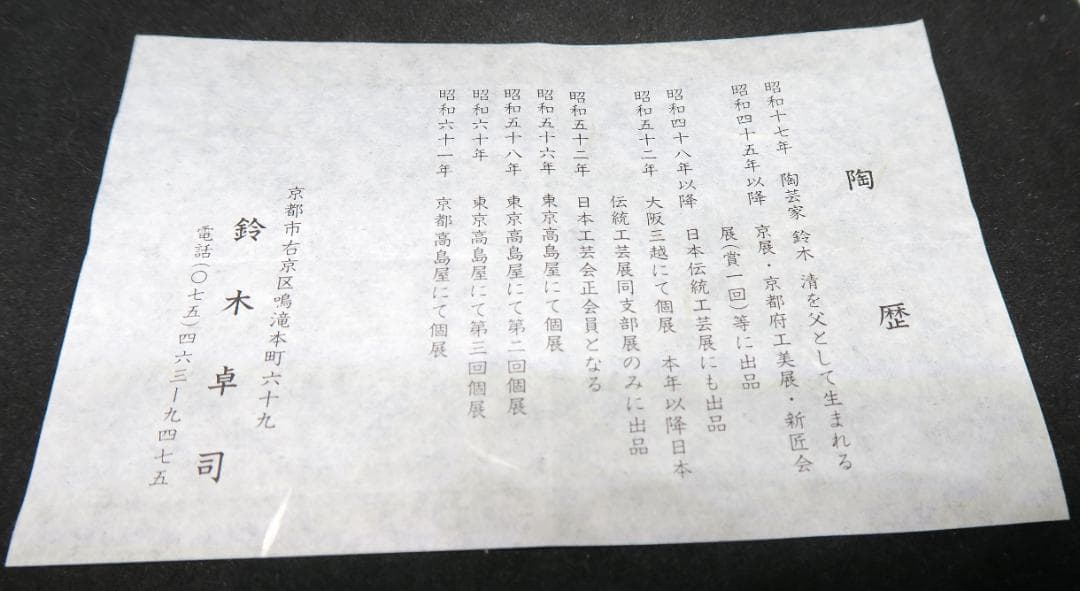 陶歴
昭和十七年 陶芸家 鈴木 清を父として生まれる
昭和四十五年以降 京展・京都府工美展・新匠会
展(賞一回)等に出品
昭和四十八年以降 日本伝統工芸展にも出品
昭和五十二年 大阪三越にて個展 本年以降日本
伝統工芸展同支部展のみに出品
昭和五十二年 日本工芸会正会員となる
昭和五十六年 東京高島屋にて個展
昭和五十八年 東京高島屋にて第二回個展
昭和六十年 東京高島屋にて第三回個展
昭和六十一年 京都高島屋にて個展
京都市右京区鳴滝本町六十九
鈴木卓司
電話(〇七五)四六三ー九四七五